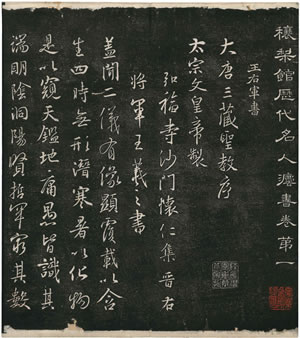 穰梨館歷代名人灋書卷第一
王右軍書
大唐三藏聖教序
太宗文皇帝製
弘福寺沙門懷仁集晉右
將軍王羲之書
蓋聞二儀有像顯覆載以含
生四時無形潛寒暑以化物
是以窺天鑑地庸愚皆識其
端明陰洞陽賢哲罕窮其數